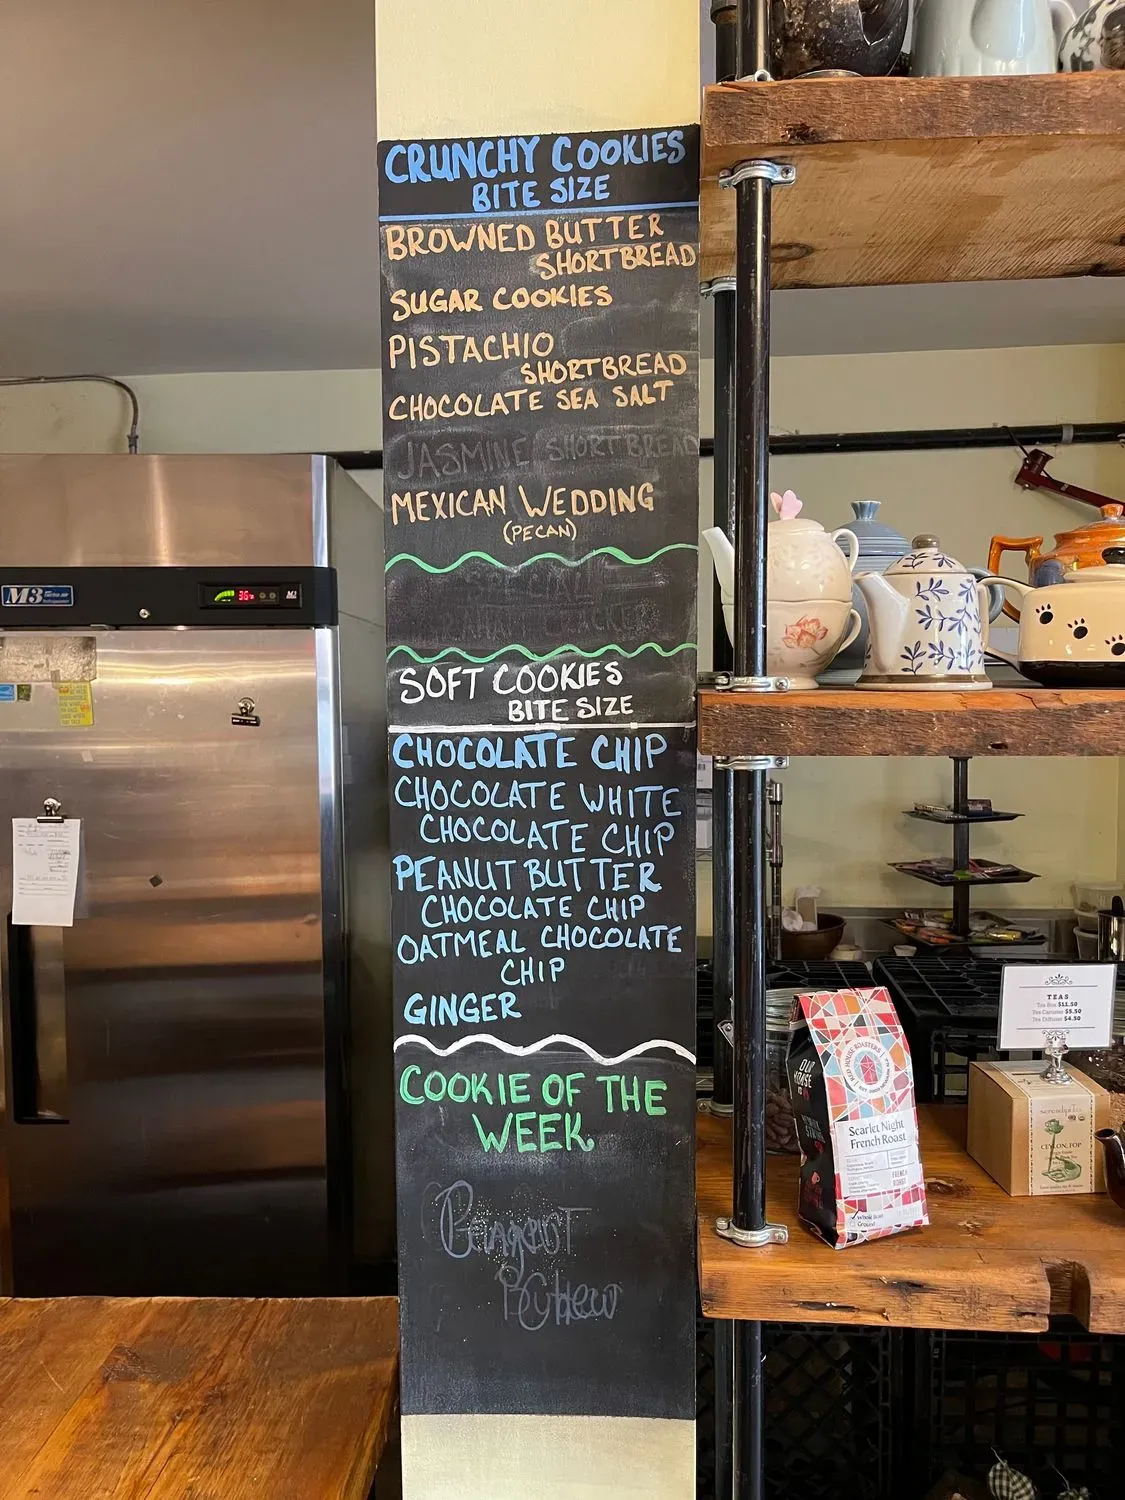 CRUNCHY COOKIES
BITE SIZE
BROWNED BUTTER
SHORTBREAD
SUGAR COOKIES
PISTACHIO
SHORTBREAD
CHOCOLATE SEA SALT
JASMINE SHORTBREAD
MEXICAN WEDDING
(PECAN)
SPECIAL
SOFT COOKIES
BITE SIZE
CHOCOLATE CHIP
CHOCOLATE WHITE
CHOCOLATE CHIP
PEANUT BUTTER
CHOCOLATE CHIP
OATMEAL CHOCOLATE
CHIP
GINGER
COOKIE OF THE
WEEK
M3
36
TEAS
Tea Box $11.50
Tea Canister $5.50
Tea Diffuser $4.50
RED HOUSE ROASTERS
Scarlet Night
French Roast
FRENCH
ROAST
Whole Bean
Ground
serendipiTea
CEYLON, FOP